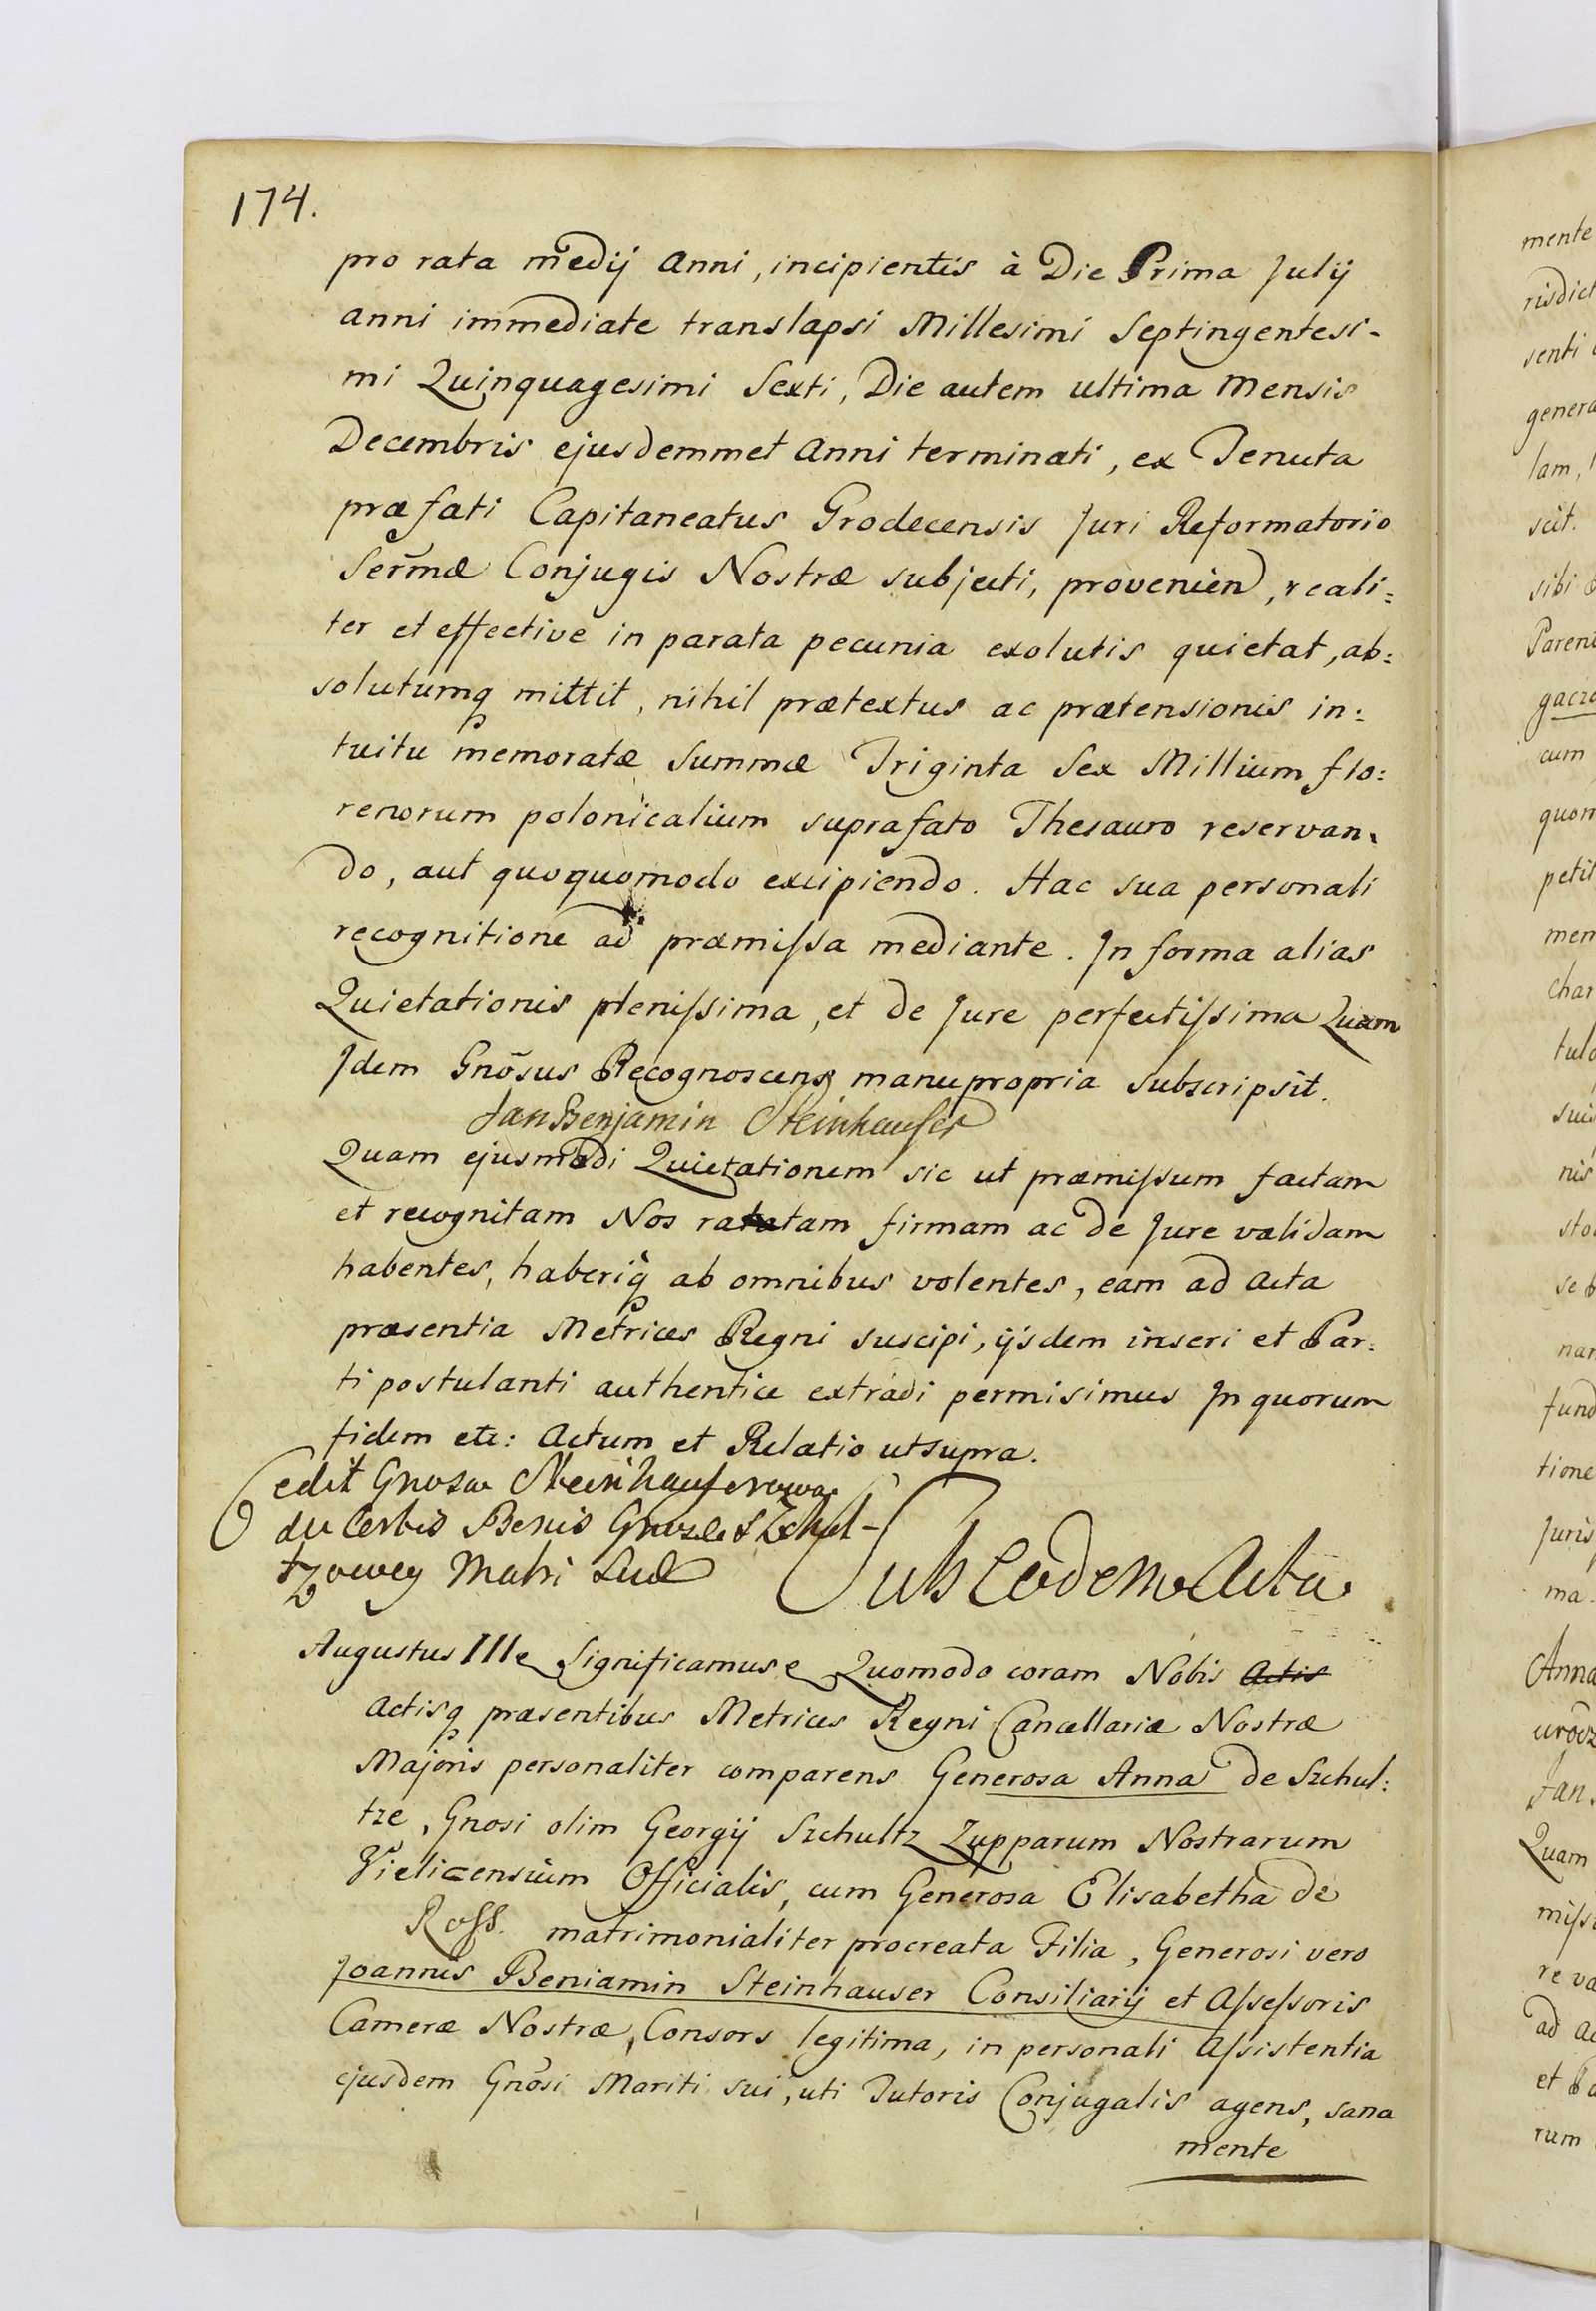 174.
pro rata medij anni, incipientis à Die Prima Julij
anni immediate translapsi Millesimi Septingentesi-
mi Quinquagesimi Sexti, Die autem ultima Mensis
Decembris ejusdemmet anni terminati, ex Tenuta
præfati Capitaneatus Grodecensis Juri Reformatorio
Serm̃æ Conjugis Nostræ subjecti, provenien, reali:
ter et effective in parata pecunia exolutis quietat, ab:
solutumq mittit, nihil prætextus ac prætensionis in:
tuitu memoratæ Summæ Triginta Sex Millium flo:
renorum polonicalium suprafato Thesauro reservan-
do, aut quoquomodo excipiendo. Hac sua personali
recognitione ad præmiſsa mediante. In forma alias
Quietationis pleniſsima, et de Jure perfectiſsima Quam
Idem Gnõsus Recognoscens manupropria subscripsit.
Jan Benjamin Steinhauser
Quam ejusmodi Quietationem sic ut præmiſsum factam
et recognitam Nos ratam firmam ac de Jure validam
habentes, haberiq ab omnibus volentes, eam ad Acta
præsentia Metrices Regni suscipi, ijsdem inseri et Par:
ti postulanti authentice extradi permisimus In quorum
fidem etc: Actum et Relatio utsupra.
Cedit Gnosa Steinhauserowa
de certis Bonis Gnosæ Szchul-
tzowey Matri Suæ
Sub Eadem Acta
Augustus III Significamus Quomodo coram Nobis Actis
Actisq præsentibus Metrices Regni Cancellariæ Nostræ
Majoris personaliter comparens Generosa Anna de Szchul:
tze, Gnosi olim Georgij Szchultz Zupparum Nostrarum
Vielicensium Officialis, cum Generosa Elisabetha de
Roſs. matrimonialiter procreata Filia, Generosi vero
Joannis Beniamin Steinhauser Consiliarij et Aſseſsoris
Cameræ Nostræ, Consors legitima, in personali Aſsistentia
ejusdem Gnõsi Mariti sui, uti Tutoris Conjugalis agens, sana
mente